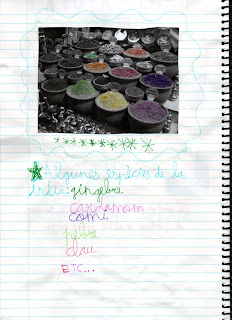 Algunes espécies de la
índia: gingebre
cardamom
comí
pebre
clau
ETC...